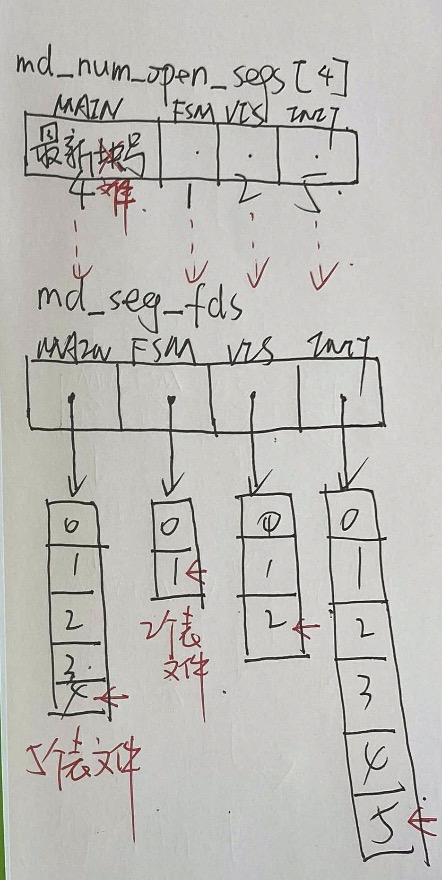 md_num_open_segs[4]
MAIN FSM VIS INIT
最新块号
文件
4 1 2 5
md_seg_fds
MAIN FSM VIS INIT
0 0 0 0
1 1 1 1
2 2 2
3 3
4 4
5
2个表
文件
5个表文件